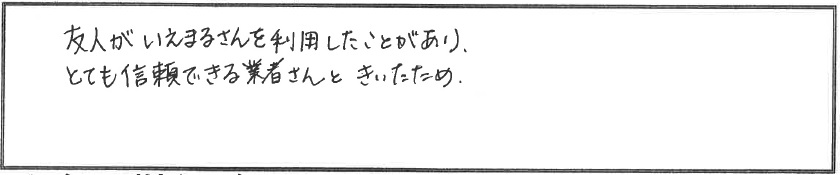 友人がいえまるさんを利用したことがあり、
とても信頼できる業者さんときいたため.